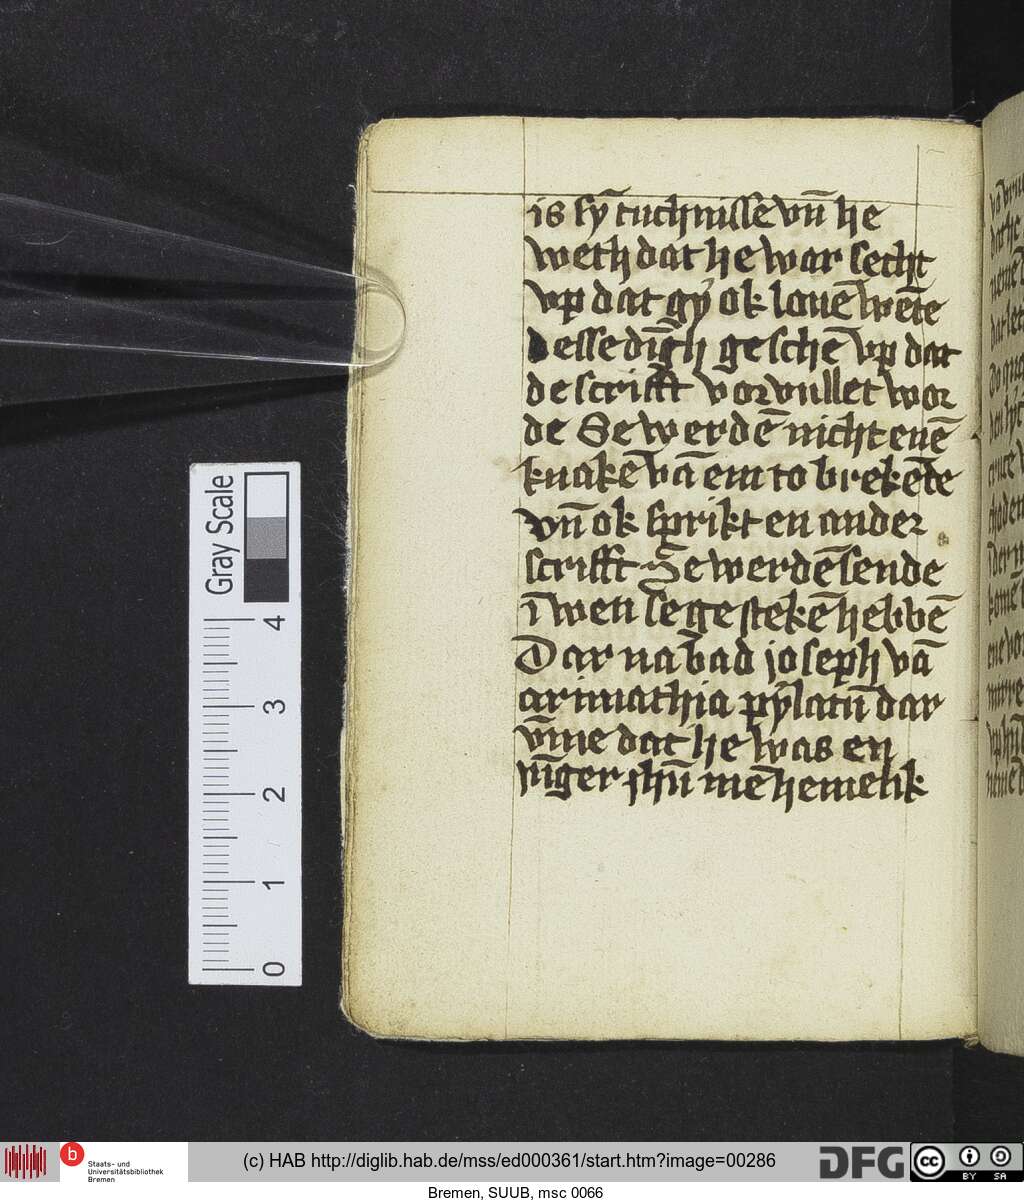 is sȳ tuchnisse vn̄ he
weth dat he war secht
vp dat gy ok louē wēte
desse dīgh geschē vp dat
de scrifft vorvullet wor
de Se werdē nicht enē
knake vā em to brekēde
vn̄ ok sprikt en ander
scrifft Se werdē sende
ī wen se ge stekē hebbē
Dar na bad joseph vā
arimathia pylatū dar
vm̄e dat he was en
iūger jhū mē hemelik
Gray Scale
0 1 2 3 4
b Staats- und
Universitätsbibliothek
Bremen
(c) HAB http://diglib.hab.de/mss/ed000361/start.htm?image=00286
DFG
cc BY SA
Bremen, SUUB, msc 0066